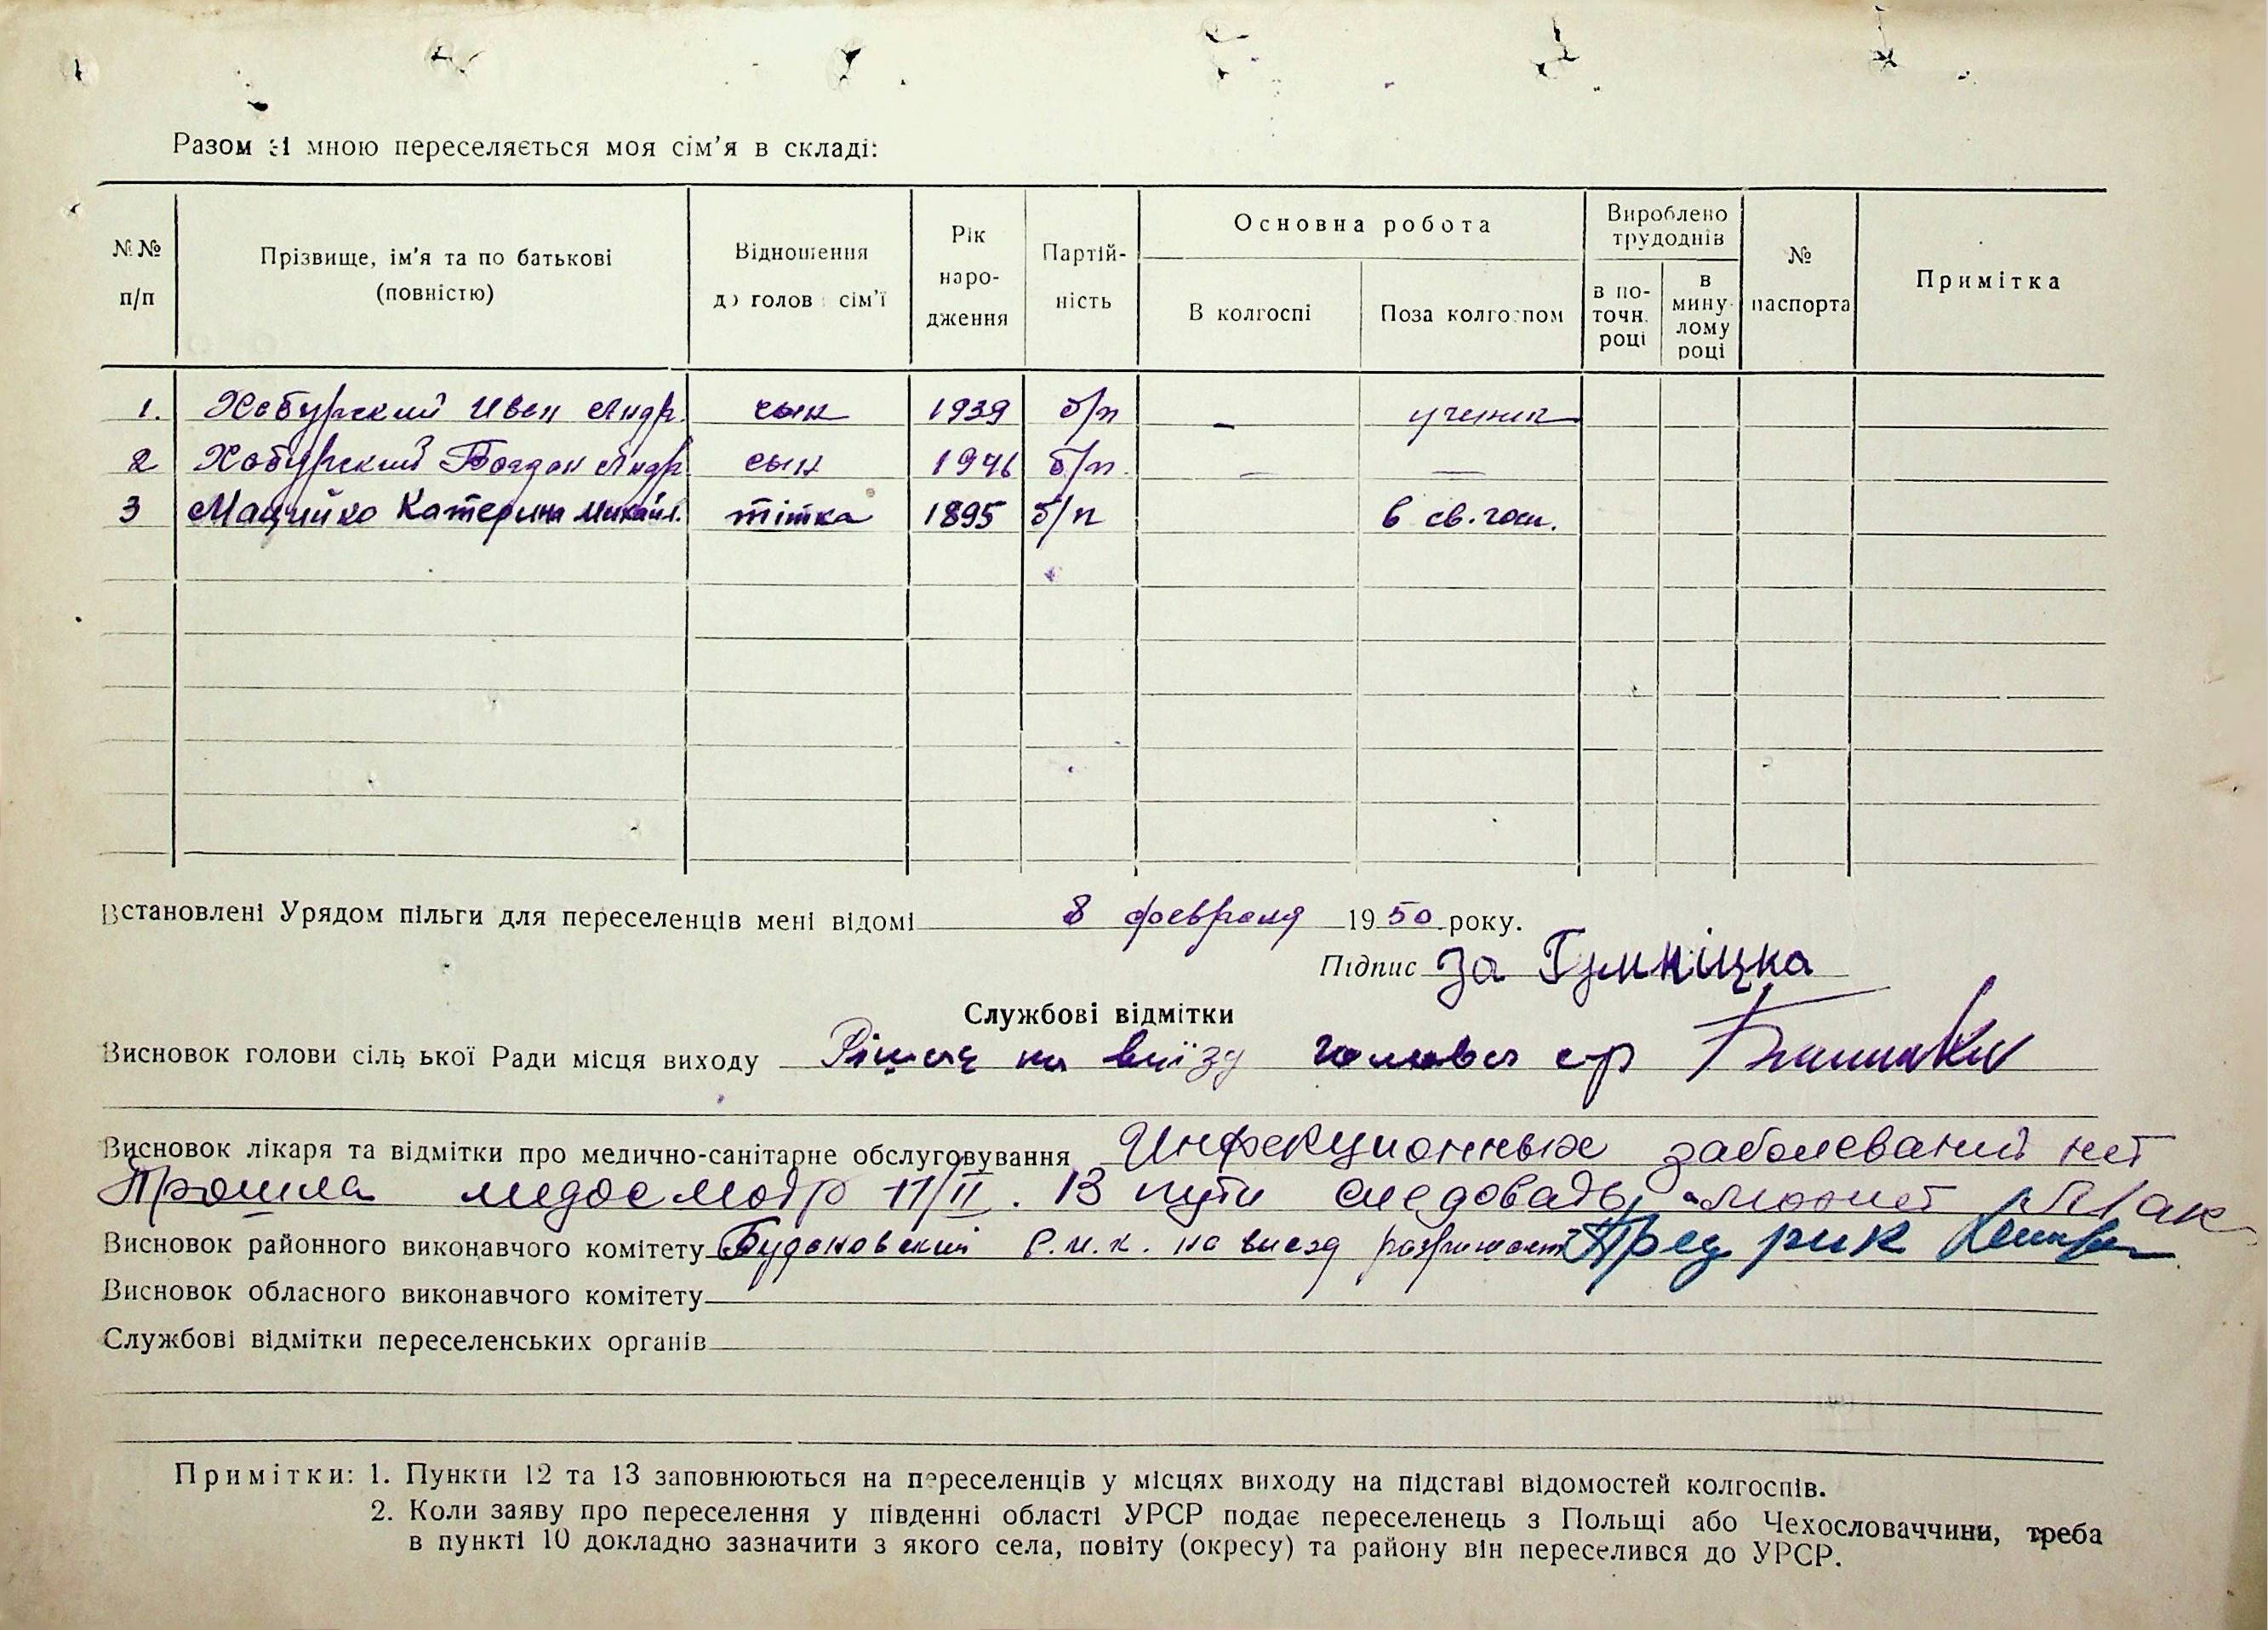 Разом зі мною переселяється моя сім'я в складі:
№№ п/п
Прізвище, ім'я та по батькові (повністю)
Відношення до голови сім'ї
Рік народження
Партійність
Основна робота
В колгоспі
Поза колгоспом
Вироблено трудоднів
в поточн. році
в минулому році
№ паспорта
Примітка
1. Хобурский Иван Андр. сын 1939 б/п — ученик
2 Хобурский Богдан Андр сын 1946 б/п. — —
3 Мацийко Катерина Михайл. тітка 1895 б/п в св. госп.
Встановлені Урядом пільги для переселенців мені відомі 8 февраля 1950 року.
Підпис за Гумніцка
Службові відмітки
Висновок голови сільської Ради місця виходу на виїзд голова с/р
Висновок лікаря та відмітки про медично-санітарне обслуговування Инфекционных заболеваний нет
Прошла медосмотр 11/II. В пути следовать может
Висновок районного виконавчого комітету Р.и.к. на виезд Пред рик
Висновок обласного виконавчого комітету
Службові відмітки переселенських органів
Примітки: 1. Пункти 12 та 13 заповнюються на переселенців у місцях виходу на підставі відомостей колгоспів.
2. Коли заяву про переселення у південні області УРСР подає переселенець з Польщі або Чехословаччини, треба
в пункті 10 докладно зазначити з якого села, повіту (окресу) та району він переселився до УРСР.